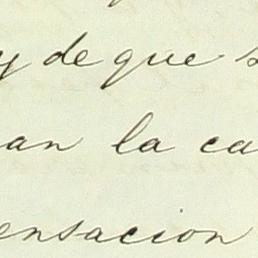 y de que s
an la ca
ensacion